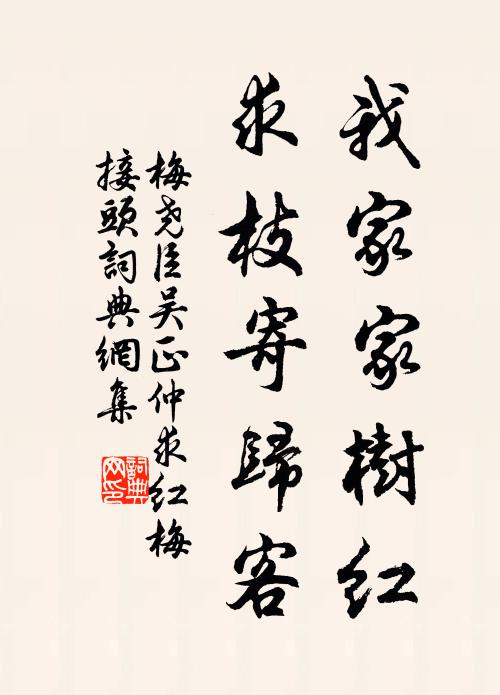 我家家樹紅
求枝寄歸客
梅堯臣吴正仲求红梅
接頭詞典網集
詞典网印